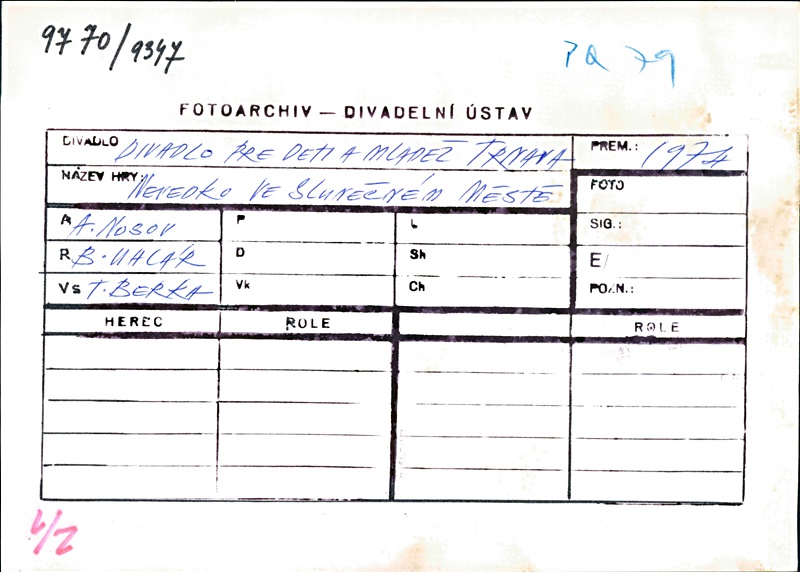 9770/9347
PQ 79
FOTOARCHIV — DIVADELNÍ ÚSTAV
DIVADLO DIVADLO PRE DETI A MLADEŽ TRNAVA PREM.: 1974
NÁZEV HRY: NEVEDKO VE SLUNEČNÉM MĚSTĚ FOTO
A A. NOSOV P L SIG.:
R B. ULICÁR D Sh E/
Vs T. BERKA Vk Ch POZN.:
HEREC ROLE ROLE